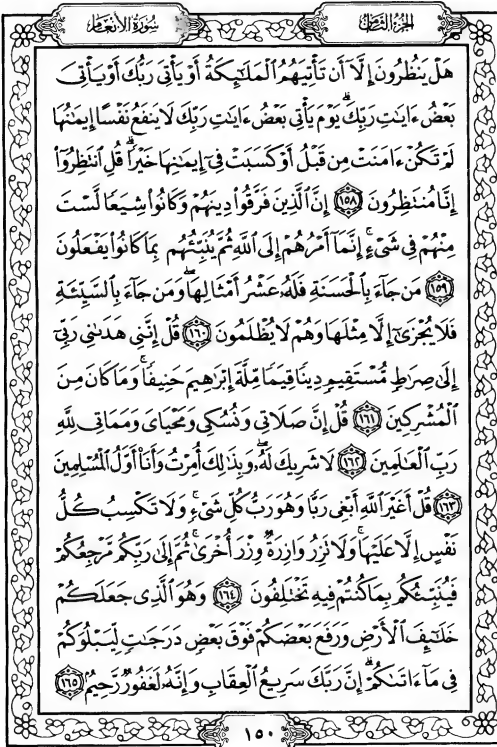 سُورَةُ الأَنعَام الجُزءُ الثَّامِن
هَلْ يَنظُرُونَ إِلَّآ أَن تَأْتِيَهُمُ ٱلْمَلَٰٓئِكَةُ أَوْ يَأْتِىَ رَبُّكَ أَوْ يَأْتِىَ
بَعْضُ ءَايَٰتِ رَبِّكَ ۗ يَوْمَ يَأْتِى بَعْضُ ءَايَٰتِ رَبِّكَ لَا يَنفَعُ نَفْسًا إِيمَٰنُهَا
لَمْ تَكُنْ ءَامَنَتْ مِن قَبْلُ أَوْ كَسَبَتْ فِىٓ إِيمَٰنِهَا خَيْرًا ۗ قُلِ ٱنتَظِرُوٓا۟
إِنَّا مُنتَظِرُونَ ١٥٨ إِنَّ ٱلَّذِينَ فَرَّقُوا۟ دِينَهُمْ وَكَانُوا۟ شِيَعًا لَّسْتَ
مِنْهُمْ فِى شَىْءٍ ۚ إِنَّمَآ أَمْرُهُمْ إِلَى ٱللَّهِ ثُمَّ يُنَبِّئُهُم بِمَا كَانُوا۟ يَفْعَلُونَ
١٥٩ مَن جَآءَ بِٱلْحَسَنَةِ فَلَهُۥ عَشْرُ أَمْثَالِهَا ۖ وَمَن جَآءَ بِٱلسَّيِّئَةِ
فَلَا يُجْزَىٰٓ إِلَّا مِثْلَهَا وَهُمْ لَا يُظْلَمُونَ ١٦٠ قُلْ إِنَّنِى هَدَىٰنِى رَبِّىٓ
إِلَىٰ صِرَٰطٍ مُّسْتَقِيمٍ دِينًا قِيَمًا مِّلَّةَ إِبْرَٰهِيمَ حَنِيفًا ۚ وَمَا كَانَ مِنَ
ٱلْمُشْرِكِينَ ١٦١ قُلْ إِنَّ صَلَاتِى وَنُسُكِى وَمَحْيَاىَ وَمَمَاتِى لِلَّهِ
رَبِّ ٱلْعَٰلَمِينَ ١٦٢ لَا شَرِيكَ لَهُۥ ۖ وَبِذَٰلِكَ أُمِرْتُ وَأَنَا۠ أَوَّلُ ٱلْمُسْلِمِينَ
١٦٣ قُلْ أَغَيْرَ ٱللَّهِ أَبْغِى رَبًّا وَهُوَ رَبُّ كُلِّ شَىْءٍ ۚ وَلَا تَكْسِبُ كُلُّ
نَفْسٍ إِلَّا عَلَيْهَا ۚ وَلَا تَزِرُ وَازِرَةٌ وِزْرَ أُخْرَىٰ ۚ ثُمَّ إِلَىٰ رَبِّكُم مَّرْجِعُكُمْ
فَيُنَبِّئُكُم بِمَا كُنتُمْ فِيهِ تَخْتَلِفُونَ ١٦٤ وَهُوَ ٱلَّذِى جَعَلَكُمْ
خَلَٰٓئِفَ ٱلْأَرْضِ وَرَفَعَ بَعْضَكُمْ فَوْقَ بَعْضٍ دَرَجَٰتٍ لِّيَبْلُوَكُمْ
فِى مَآ ءَاتَىٰكُمْ ۗ إِنَّ رَبَّكَ سَرِيعُ ٱلْعِقَابِ وَإِنَّهُۥ لَغَفُورٌ رَّحِيمٌۢ ١٦٥
١٥٠